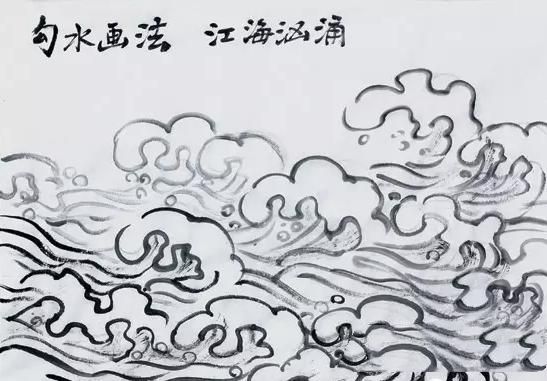 勾水画法 江海汹涌